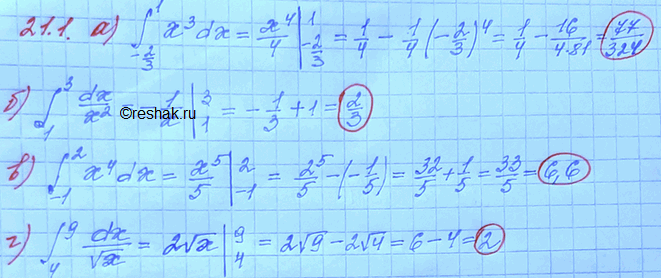 21.1. а) ∫_{-2/3}^{1} x³dx = x⁴/4 |_{-2/3}^{1} = 1/4 - 1/4(-2/3)⁴ = 1/4 - 16/(4·81) = 77/324
б) ∫_{1}^{3} dx/x² = -1/x |_{1}^{3} = -1/3 + 1 = 2/3
©reshak.ru
в) ∫_{-1}^{2} x⁴dx = x⁵/5 |_{-1}^{2} = 2⁵/5 - (-1/5) = 32/5 + 1/5 = 33/5 = 6,6
г) ∫_{4}^{9} dx/√x = 2√x |_{4}^{9} = 2√9 - 2√4 = 6 - 4 = 2